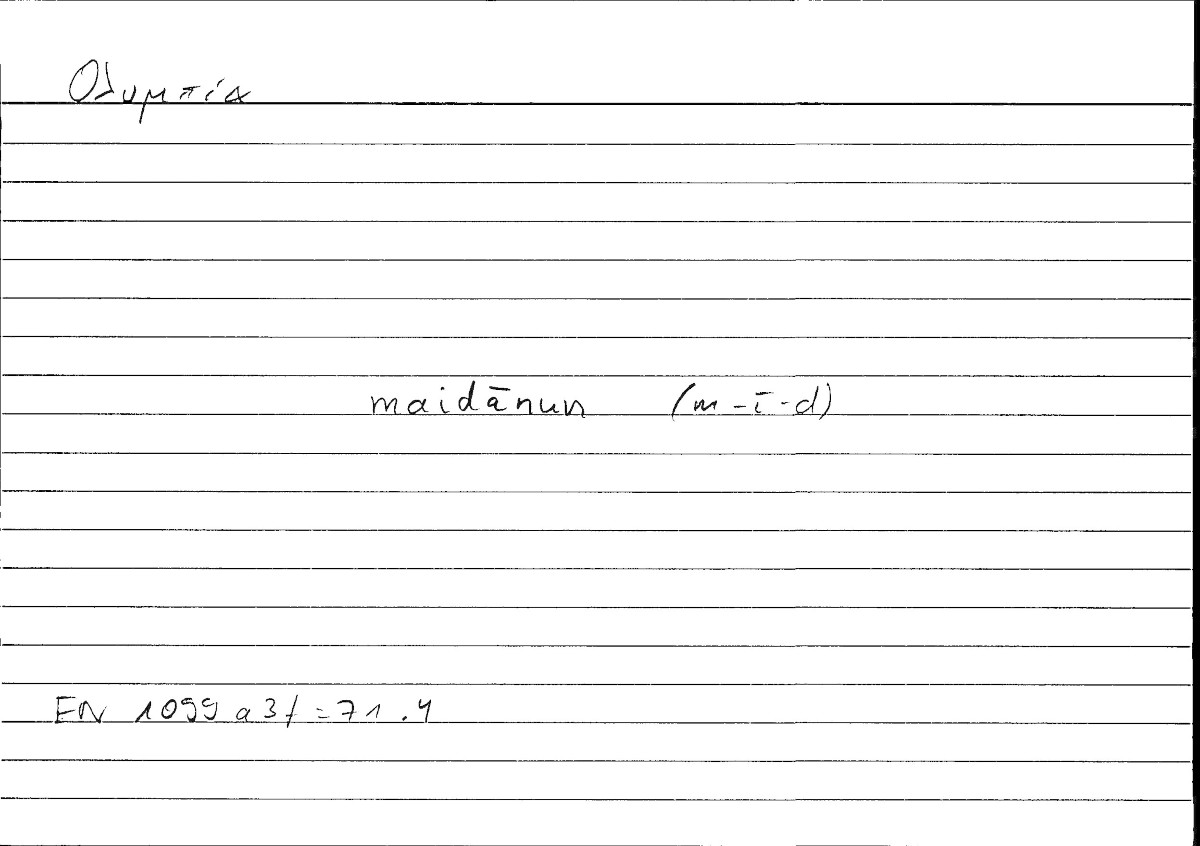 Ολυμπία
maidānun (m-ī-d)
EN 1099a3f=71.4